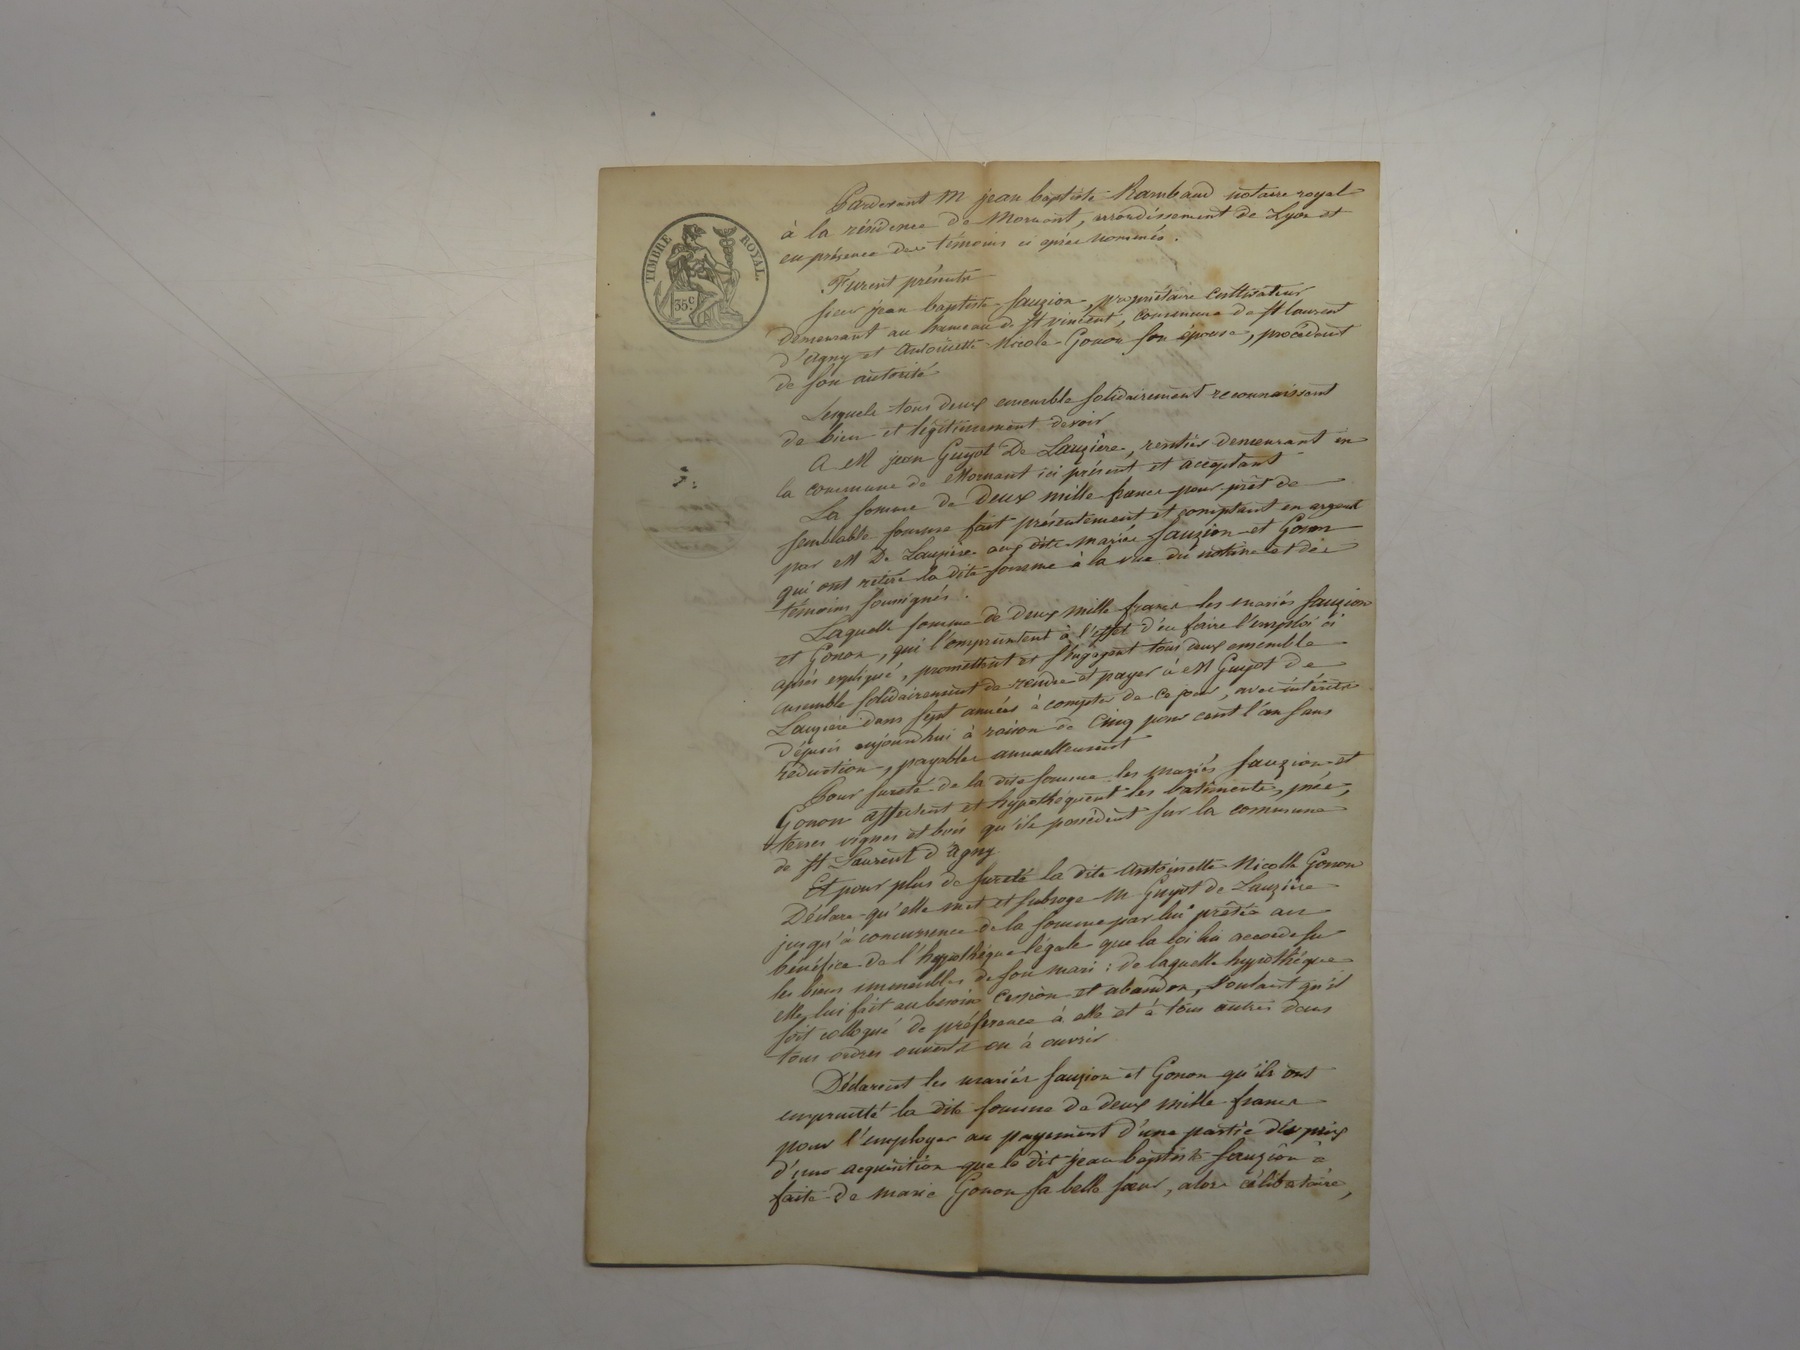 TIMBRE ROYAL
35 c
Pardevant M jean baptiste Rambaud notaire royal
à la résidence de Mornant, arrondissement de Lyon et
en présence des témoins ci après nommés.
Furent présents
sieur jean baptiste Fauzion, propriétaire cultivateur
demeurant au hameau de St vincent, commune de St Laurent
d'agny et Antoinette Nicole Gonon son épouse, procédant
de son autorité
Lesquels tous deux ensemble solidairement reconnaissent
de bien et légitimement devoir
A M jean Guyot De Lauzière, rentier demeurant en
la commune de Mornant ici présent et acceptant
La somme de Deux mille francs pour prêt de
semblable somme fait présentement et comptant en argent
par M De Lauzière aux dits mariés fauzion et Gonon
qui ont retiré la dite somme à la vue du notaire et des
témoins soussignés.
Laquelle somme de deux mille francs les mariés fauzion
et Gonon, qui l'empruntent à l'effet d'en faire l'emploi ci
après expliqué, promettent et s'engagent tous deux ensemble
ensemble solidairement de rendre et payer à M Guyot de
Lauzière dans sept années à compter de ce jour, avec intérêts
dépuis aujourd'hui à raison de Cinq pour cent l'an sans
réduction, payables annuellement
Pour sureté de la dite somme les mariés fauzion et
Gonon affectent et hypothéquent les batiments, prés,
terres vignes et bois qu'ils possèdent sur la commune
de St Laurent d'Agny
Et pour plus de sureté la dite Antoinette Nicolle Gonon
Déclare qu'elle met et subroge M Guyot de Lauzière
jusqu'à concurrence de la somme par lui prêtée au
bénéfice de l'hypothèque légale que la loi lui accorde sur
les biens immeubles de son mari: de laquelle hypothèque
elle lui fait au besoin cession et abandon, voulant qu'il
soit colloqué de préférence à elle et à tous autres dans
tous ordres ouverts ou à ouvrir
Déclarent les mariés fauzion et Gonon qu'ils ont
emprunté la dite somme de deux mille francs
pour l'employer au payement d'une partie du prix
d'une acquisition que le dit jean baptiste fauzion a
faite de marie Gonon sa belle sœur, alors célibataire,